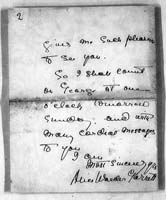 2
give me such pleasure
to see you.
So I shall count
on George at one
o'clock tomorrow
Sunday, and with
many cordial messages
to you
I am
most sincerely
Alice Warder Garrett